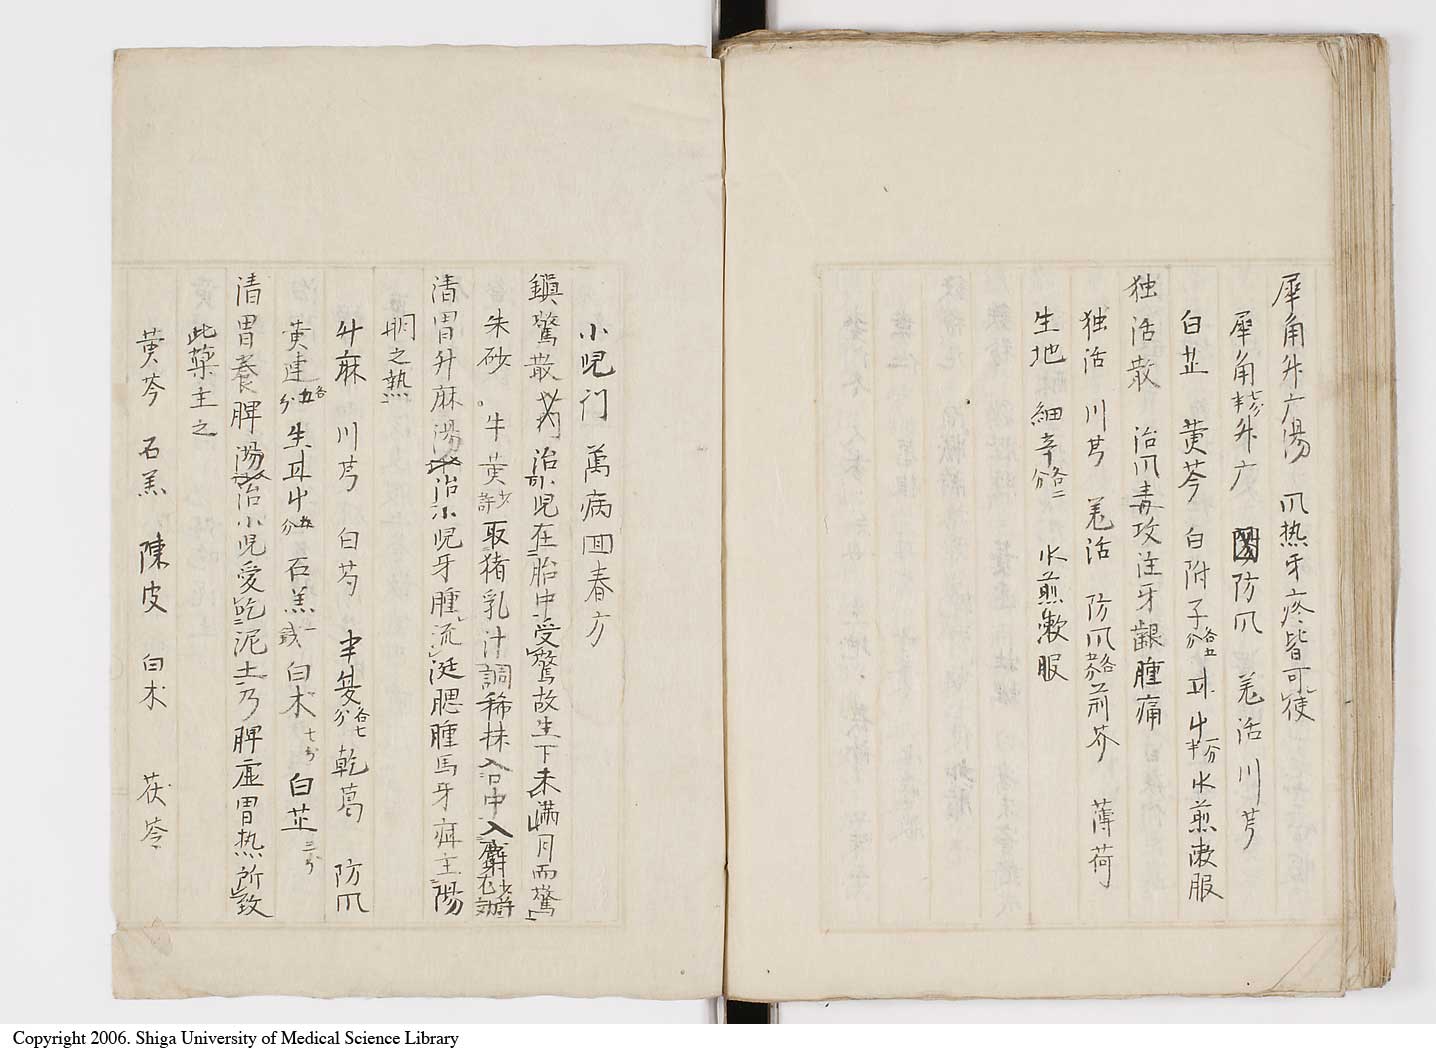 犀角升广湯 爪热牙疼皆可使
犀角七分半升广 防爪 羌活川芎
白芷 黄芩 白附子各五分 甘艸一分半水煎漱服
独活散 治爪毒攻注牙齦腫痛
独活 川芎 羌活 防爪各 荊芥 薄荷
生地 細辛各二分 水煎漱服
小児门 萬病囬春方
鎭驚散 治小児在胎中受驚故生下未満月而驚
朱砂。牛黄少許取猪乳汁調稀抹入口中入麝少許尤効
清胃升麻湯治小児牙腫流涎腮腫馬牙疳主陽
明之熱
升麻 川芎 白芍 半夏各七分 乾葛 防爪
黄連各五分 生甘艸五分 石羔一戔 白术七分 白芷三分
清胃養脾湯治小児愛吃泥土乃脾虚胃热所致
此藥主之
黄芩 石羔 陳皮 白术 茯苓
Copyright 2006. Shiga University of Medical Science Library